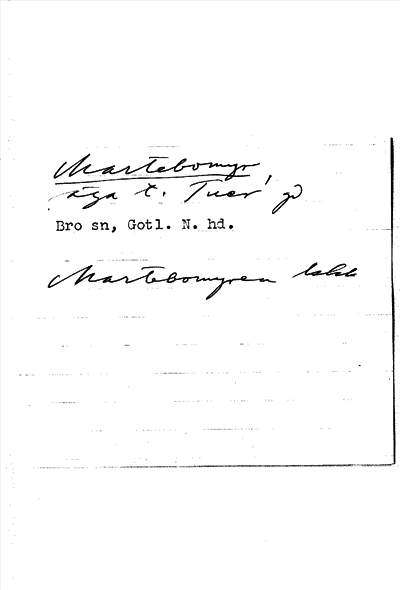 Martebomyr,
äga t. Tuer, gd
Bro sn, Gotl. N. hd.
Martebomyren